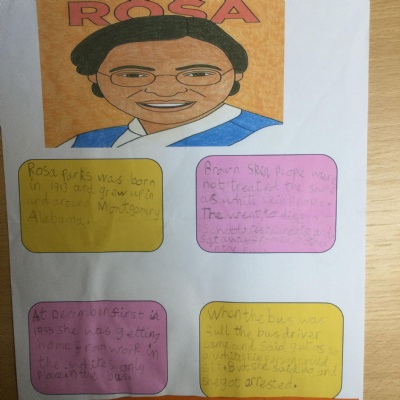 ROSA
Rosa Parks was born
in 1913 and grew up in
and around Montgomery
Alabama.
Brown Skin people were
not treated the same
as white skin people.
The went to
schools restaurants and
Sat
At December first in
1955 she was getting
home from work in
the whites only
Place in the bus.
When the bus was
full the bus driver
came and said
a white
But she said no and
she got arrested.